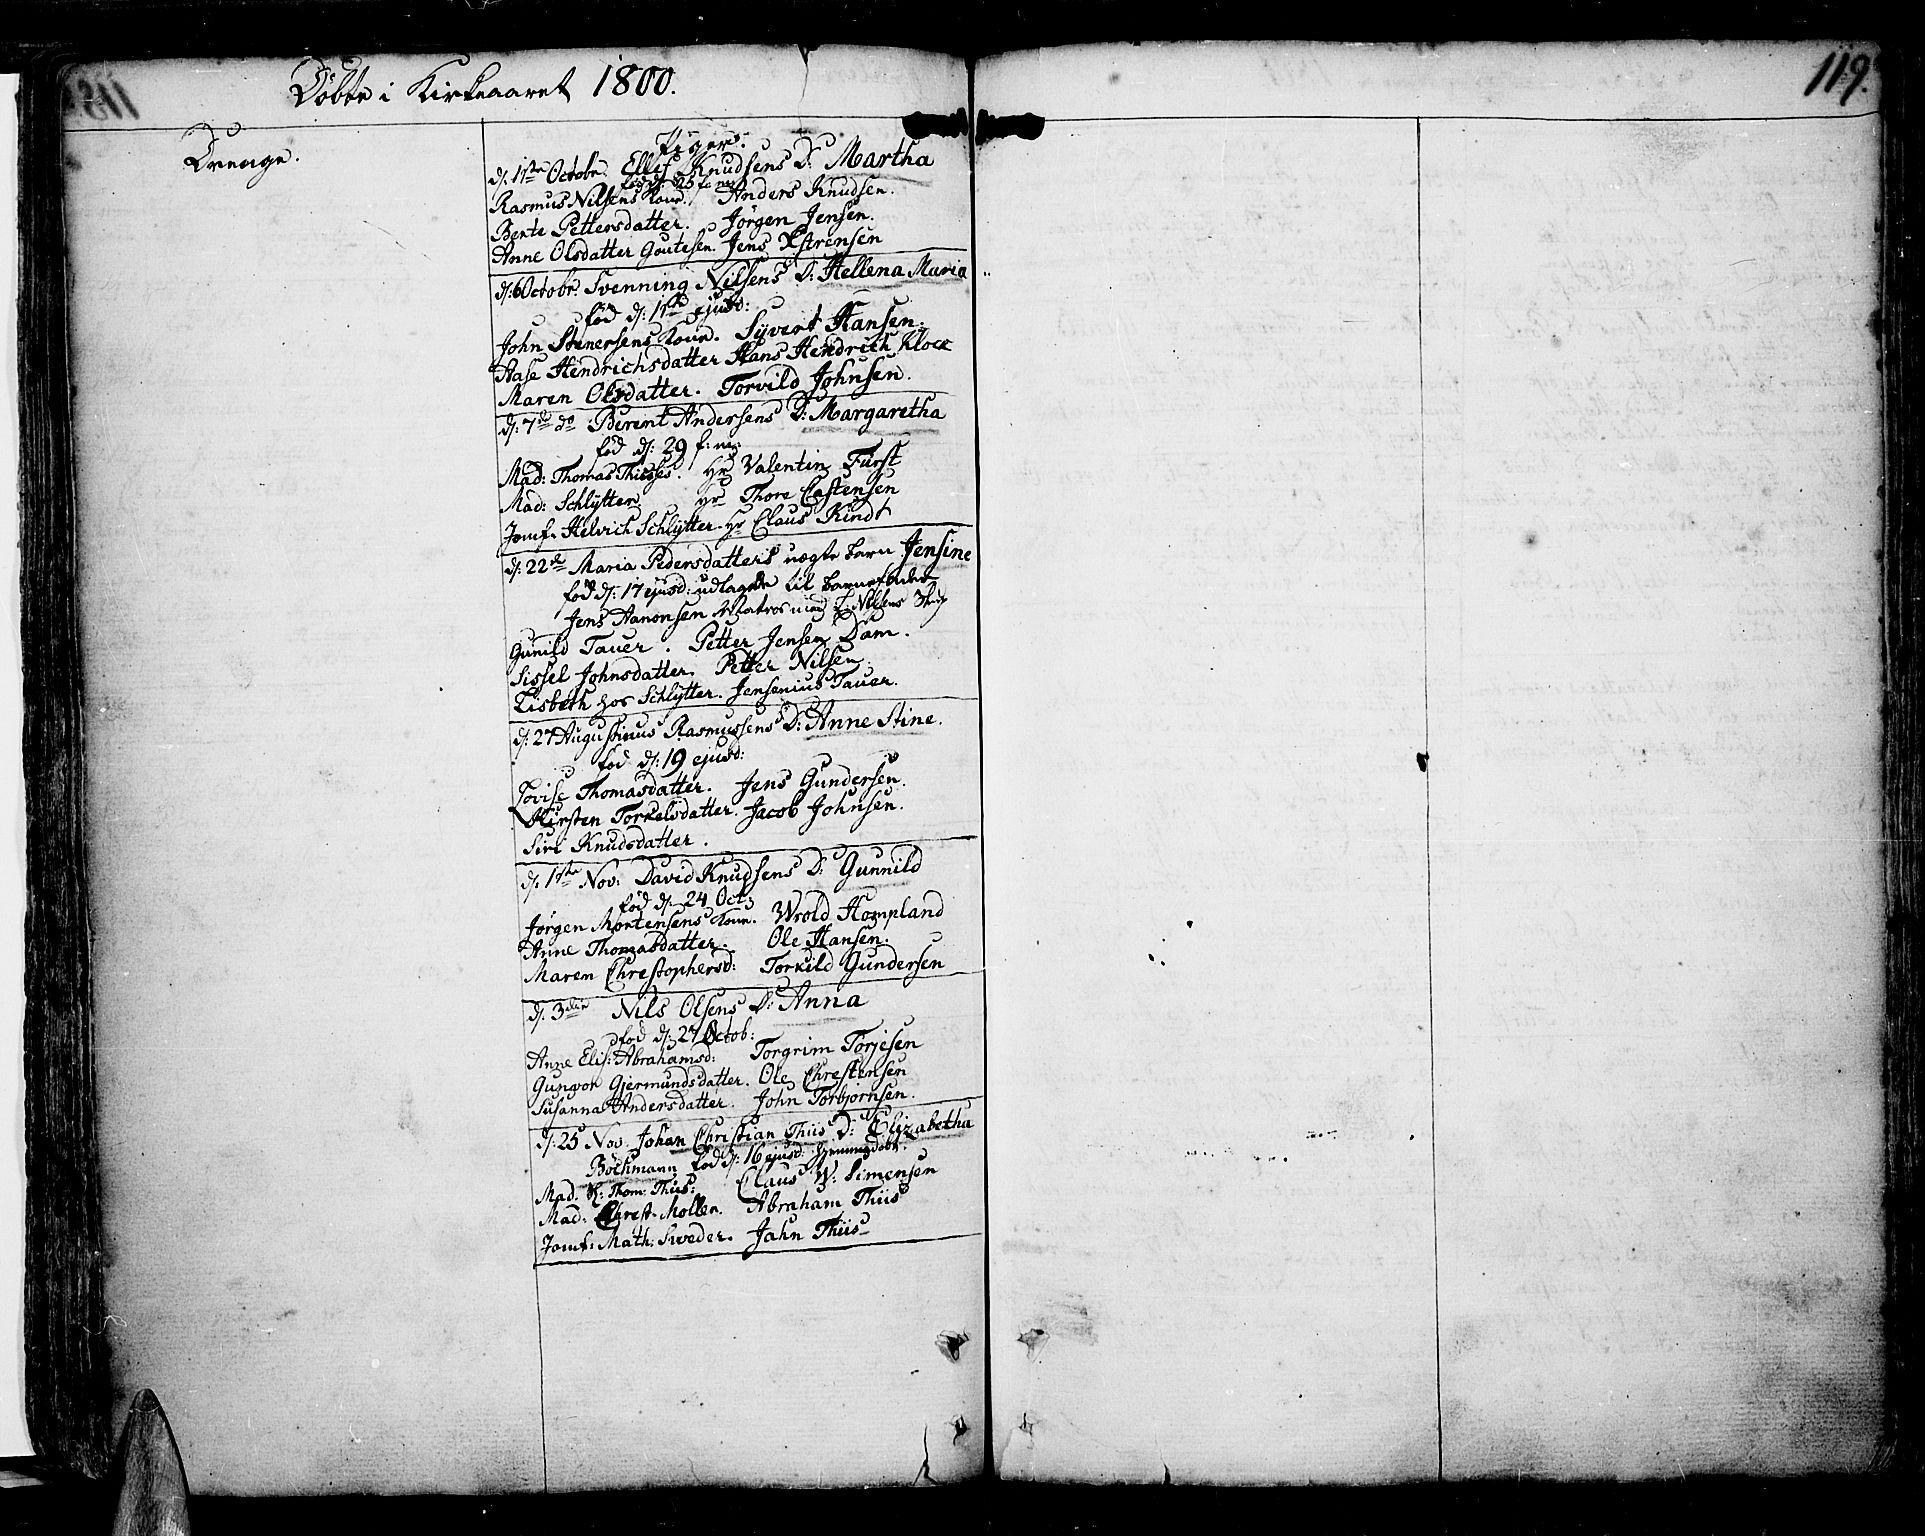 Döbte i Kirkeaaret 1800.
119.
Drenge.
Piger.
d: 1ste Octobr. Ellef Knudsens D: Martha
föd d: 25 f: m:
Rasmus Nilsens Kone. Anders Knudsen.
Bente Pettersdatter. Jörgen Jensen.
Anne Olsdatter Goutesen. Jens
d: 6 Octobr. Svenning Nilsens D: Hellena Maria
föd d: 1ste ejusd:
John Stenersens Kone. Syvert Hansen.
Aase Hendrichsdatter Hans Hendrich Klock
Maren Olsdatter. Torvild Johnsen.
d: 7de do Berent Andersens D: Margaretha
föd d: 29 f: m:
Mad: Thomas Thiises. Hr Valentin Fürst
Mad: Schlÿtter. Hr Thore Castensen
Jomf. Helvich Schlÿtter. Hr Claus Kindt
d: 22de Maria Pedersdatters uægte barn Jensine
föd d: 17 ejusd: udlagde til barnefader
Jens Aanonsen Matros med Nilsens
Gunild Tauer. Petter Jensen Dam.
Sissel Johnsdatter. Petter Nilsen.
Lisbeth hos Schlÿtter. Jensenius Tauer.
d: 27 Augustinus Rasmussens D: Anne Stine.
föd d: 19 ejusd:
Lovise Thomasdatter. Jens Gundersen.
Kirsten Torkelsdatter. Jacob Johnsen.
Siri Knudsdatter.
d: 1ste Nov: David Knudsens D: Gunnild
föd d: 24 Oct:
Jörgen Mortensens Kone. Wrold Hompland
Anne Thomasdatter. Ole Hansen.
Maren Christophersd: Torkild Gundersen
d: 3die Nils Olsens D: Anna
föd d: 27 Octob:
Anne Elis: Abrahamsd: Torgrim Torjesen
Gunvor Gjermundsdatter. Ole Chrestensen
Susanna Andersdatter. John Torbjörnsen.
d: 25 Nov. Johan Christian Thiis D: Elizabetha
Böckmann föd d: 16 ejusd: hjemmedöbt.
Mad. Thom: Thiis: Claus W: Simensen
Mad: Chrest. Mollen. Abraham Thiis
Jomf: Math: Sweder. Jahn Thiis